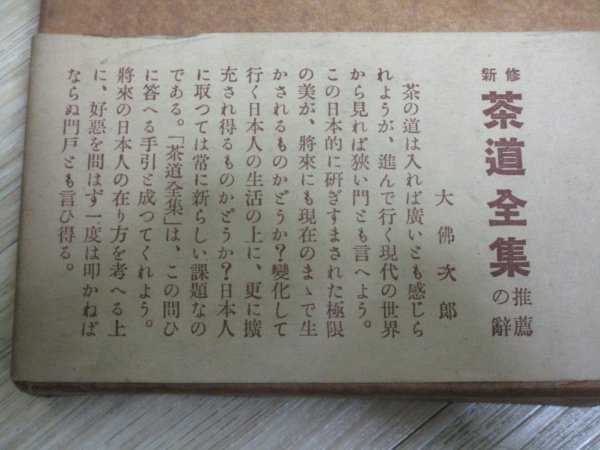 新修 茶道全集 推薦の辭
大佛次郎
茶の道は入れば廣いとも感じら
れようが、進んで行く現代の世界
から見れば狹い門とも言へよう。
この日本的に研ぎすまされた極限
の美が、將來にも現在のまゝで生
かされるものかどうか？變化して
行く日本人の生活の上に、更に擴
充され得るものかどうか？日本人
に取つては常に新らしい課題なの
である。「茶道全集」は、この問ひ
に答へる手引と成つてくれよう。
將來の日本人の在り方を考へる上
に、好惡を問はず一度は叩かねば
ならぬ門戸とも言ひ得る。